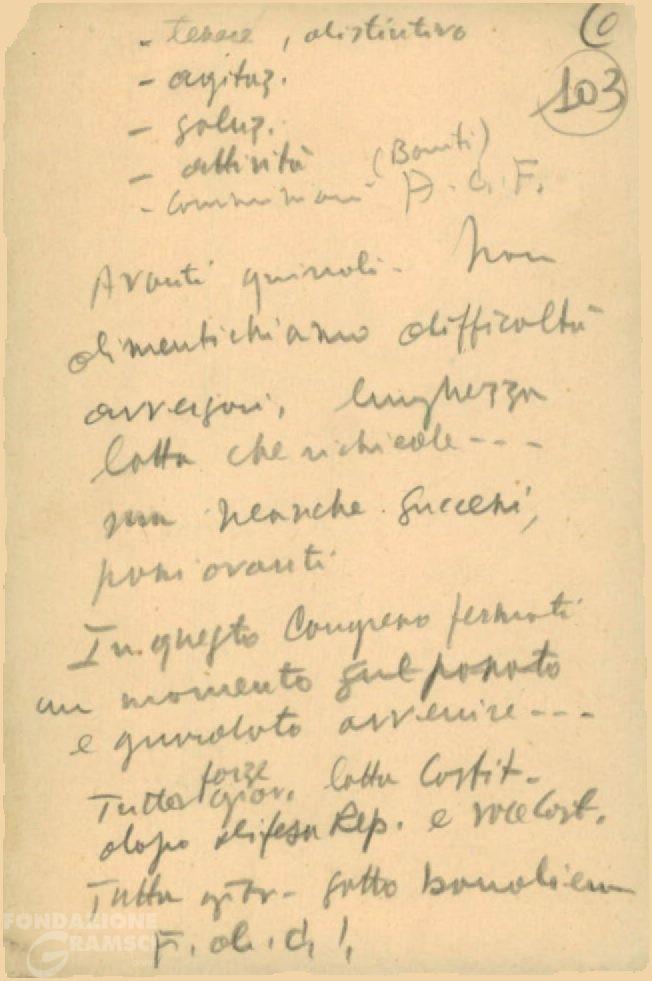 6
103
- tessere, distintivo
- agitaz.
- soluz.
- attività (Boniti)
- Commissioni A. C. F.
Avanti quindi. Non
dimentichiamo difficoltà
avversari, lunghezza
lotta che richiede ---
ma neanche successi,
passi avanti
In questo Congresso fermati
un momento sul passato
e guardato avvenire ---
Tutte forze giov. lotta Costit.
dopo difesa Rep. e voce Cost.
Tutta giov. sotto bandiera
F. d. d. !
FONDAZIONE
GRAMSCI